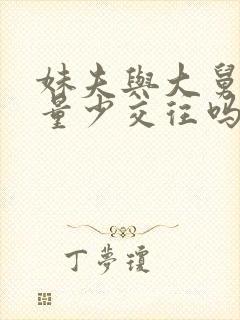 妹夫與大舅
量少交往吗
丁夢瓊